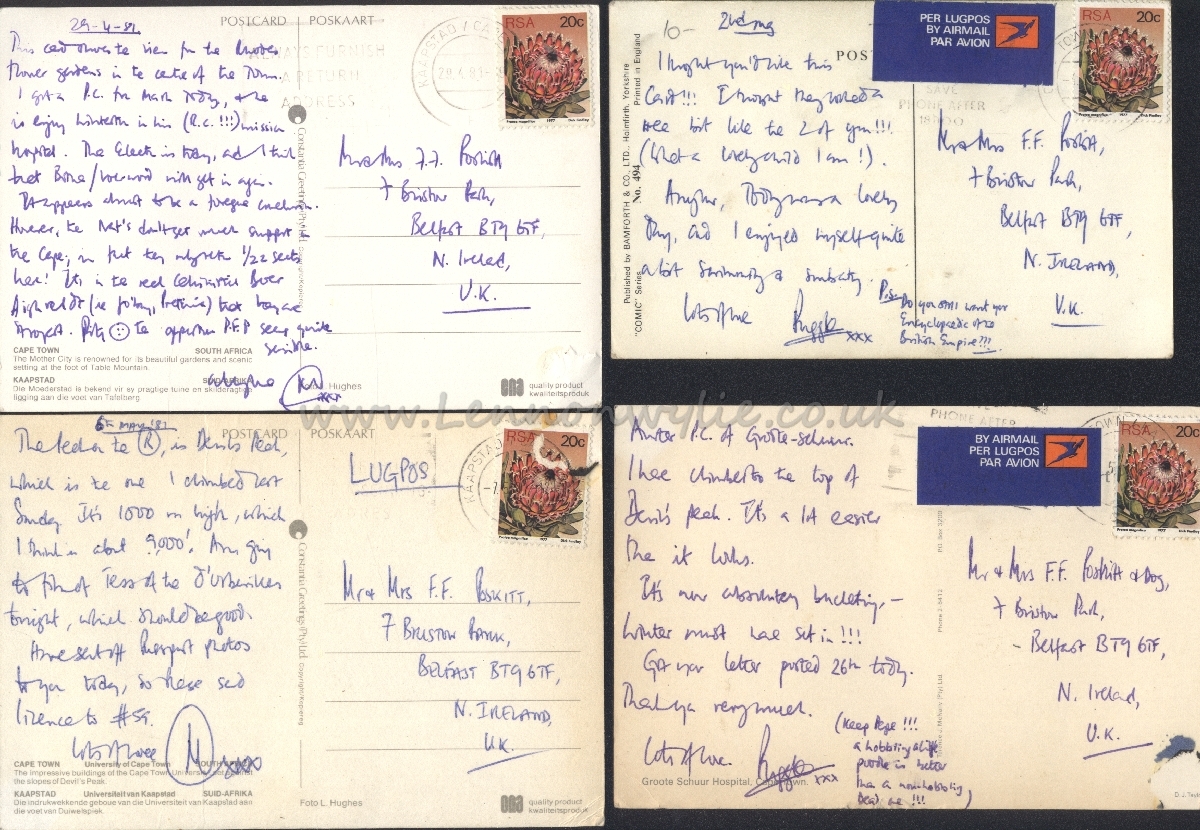 29-4-81
POSTCARD POSKAART
This card shows the view for the Rhodes
flower gardens in the centre of the Town.
I got a P.C. for Mark today, & he
is enjoying himself in his (R.C.!!!) mission
hospital. The Election is today, and I think
that Botha/ will get in again.
It appears almost to be a foregone conclusion.
However, the Nat's don't get much support in
the Cape; in fact they only
here! It's in the
that they are
strongest. the opposition P.F.P. seem quite
sensible.
CAPE TOWN SOUTH AFRICA
The Mother City is renowned for its beautiful gardens and scenic
setting at the foot of Table Mountain.
KAAPSTAD SUID-AFRIKA
Die Moederstad is bekend vir sy pragtige tuine en skilderagtige
ligging aan die voet van Tafelberg
xxx
Hughes
Constantia Greetings (Pty) Ltd. copyright/kopiereg
ALWAYS FURNISH
A RETURN
ADDRESS
KAAPSTAD / CA
RSA 20c
Protea magnifica 1977 Dick Findlay
Mr & Mrs F.F. Poskitt
7 Briston Park,
Belfast BT9 6TF,
N. Ireland,
U.K.
quality product
kwaliteitsproduk
10-
2nd May
POS
I thought you'd like this
Card!!! I thought they looked a
wee bit like the 2 of you!!!
(What a lovely child I am!).
Anyhow, Today was a lovely
Day, and I enjoyed myself quite
a lot swimming & sunbathing.
Lots of love
xxx
P.S. Do you still want your
Encyclopaedia of the
British Empire!!!
"COMIC" Series No. 494
Published by BAMFORTH & CO., LTD., Holmfirth, Yorkshire
Printed in England
PER LUGPOS
BY AIRMAIL
PAR AVION
SAVE
PHONE AFTER
1800
RSA 20c
Protea magnifica 1977 Dick Findlay
Mr & Mrs F.F. Poskitt,
7 Briston Park,
Belfast BT9 6TF,
N. IRELAND,
U.K.
www.Lennonwylie.co.uk
5th MAY '81
POSTCARD POSKAART
The peak on the (R), is Devil's Peak,
which is the one I climbed last
Sunday. It's 1000 m high, which
I think is about 9,000'. Am going
to film of Tess of the D'Urbervilles
tonight, which should be good.
Have sent off Passport photos
to you today, so please send
licence to #59.
Lots of love
xxxx
CAPE TOWN University of Cape Town SOUTH AFRICA
The impressive buildings of the Cape Town University set against
the slopes of Devil's Peak.
KAAPSTAD Universiteit van Kaapstad SUID-AFRIKA
Die indrukwekkende geboue van die Universiteit van Kaapstad aan
die voet van Duiwelspiek.
Foto L. Hughes
Constantia Greetings (Pty) Ltd. copyright/kopiereg
LUGPOS
KAAPSTAD
RSA 20c
Protea magnifica 1977 Dick Findlay
Mr & Mrs F.F. POSKITT,
7 BRISTON PARK,
BELFAST BT9 6TF,
N. IRELAND,
U.K.
quality product
kwaliteitsproduk
Another P.C. of Groote-schuur.
I have climbed to the top of
Devil's peak. It's a lot easier
than it looks.
It's now absolutely bucketing, -
Winter must have set in!!!
Got your letter posted 26th today.
Thank you very much.
Lots of love.
xxx
(Keep Pepe!!!
a hobbling alive
poodle is better
than a non-hobbling
Dead one!!!)
Groote Schuur Hospital, Cape Town.
PO. Box 3200
Phone 2-5412
PHONE AFTER
BY AIRMAIL
PER LUGPOS
PAR AVION
RSA 20c
Protea magnifica 1977
Mr & Mrs F.F. Poskitt & Dog,
7 Briston Park,
- Belfast BT9 6TF,
N. Ireland,
U.K.